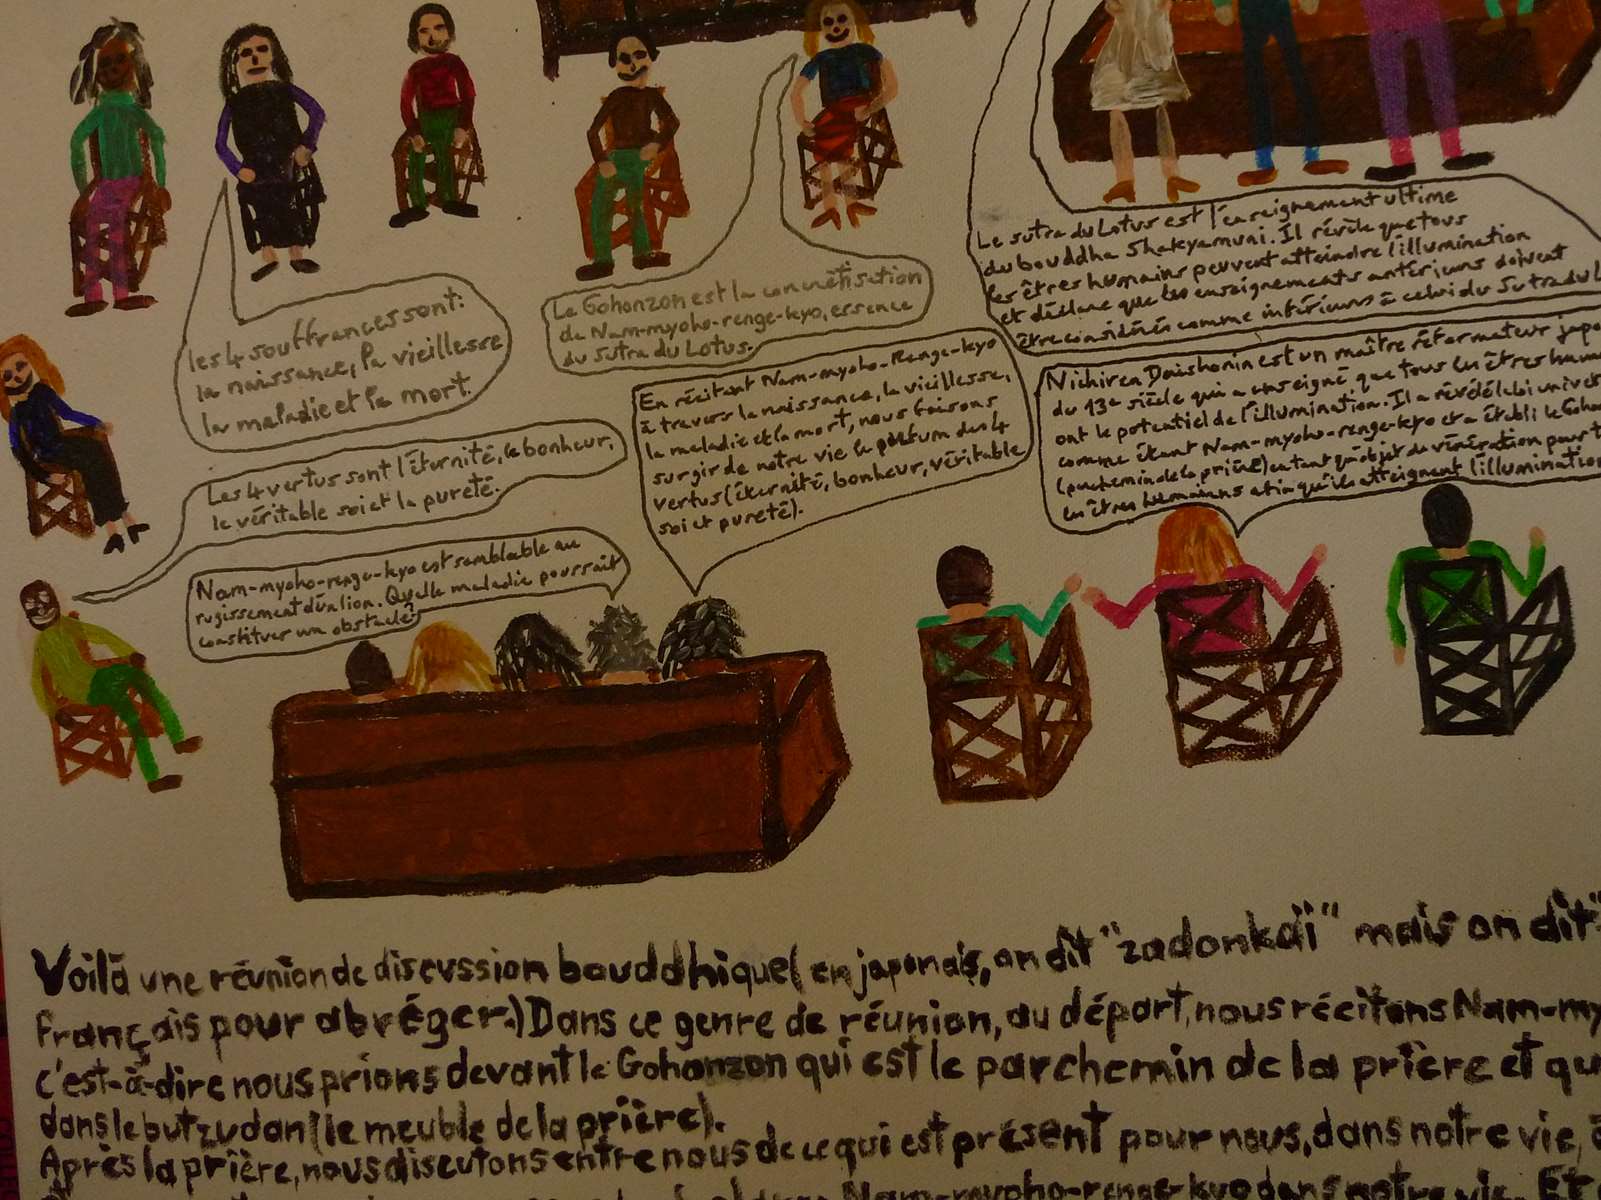 Le sutra du Lotus est l'enseignement ultime
du bouddha Shakyamuni. Il révèle que tous
les êtres humains peuvent atteindre l'illumination
et déclare que les enseignements antérieurs doivent
être considérés comme inférieurs à celui du Sutra du L
les 4 souffrances sont:
la naissance, la vieillesse
la maladie et la mort.
Le Gohonzon est la concrétisation
de Nam-myoho-renge-kyo, essence
du Sutra du Lotus.
En récitant Nam-myoho-Renge-kyo
à travers la naissance, la vieillesse,
la maladie et la mort, nous faisons
surgir de notre vie le des 4
vertus (éternité, bonheur, véritable
soi et pureté).
Nichiren Daishonin est un maître réformateur japo
du 13e siècle qui a enseigné que tous les êtres huma
ont le potentiel de l'illumination. Il a révélé loi univers
comme étant Nam-myoho-renge-kyo et a établi le Goho
(parchemin de la prière) en tant qu'objet de vénération pour t
les êtres humains afin qu'ils atteignent l'illumination
Les 4 vertus sont l'éternité, le bonheur,
le véritable soi et la pureté.
Nam-myoho-renge-kyo est semblable au
rugissement d'un lion. Quelle maladie pourrait
constituer un obstacle?
Voilà une réunion de discussion bouddhique (en japonais, on dit "zadonkaï" mais on dit "
français pour abréger.) Dans ce genre de réunion, au départ, nous récitons Nam-my
c'est-à-dire nous prions devant le Gohonzon qui est le parchemin de la prière et qu
dans le butzudan (le meuble de la prière).
Après la prière, nous discutons entre nous de ce qui est présent pour nous, dans notre vie, à
Nam-myoho-renge-kyo dans notre vie. Et